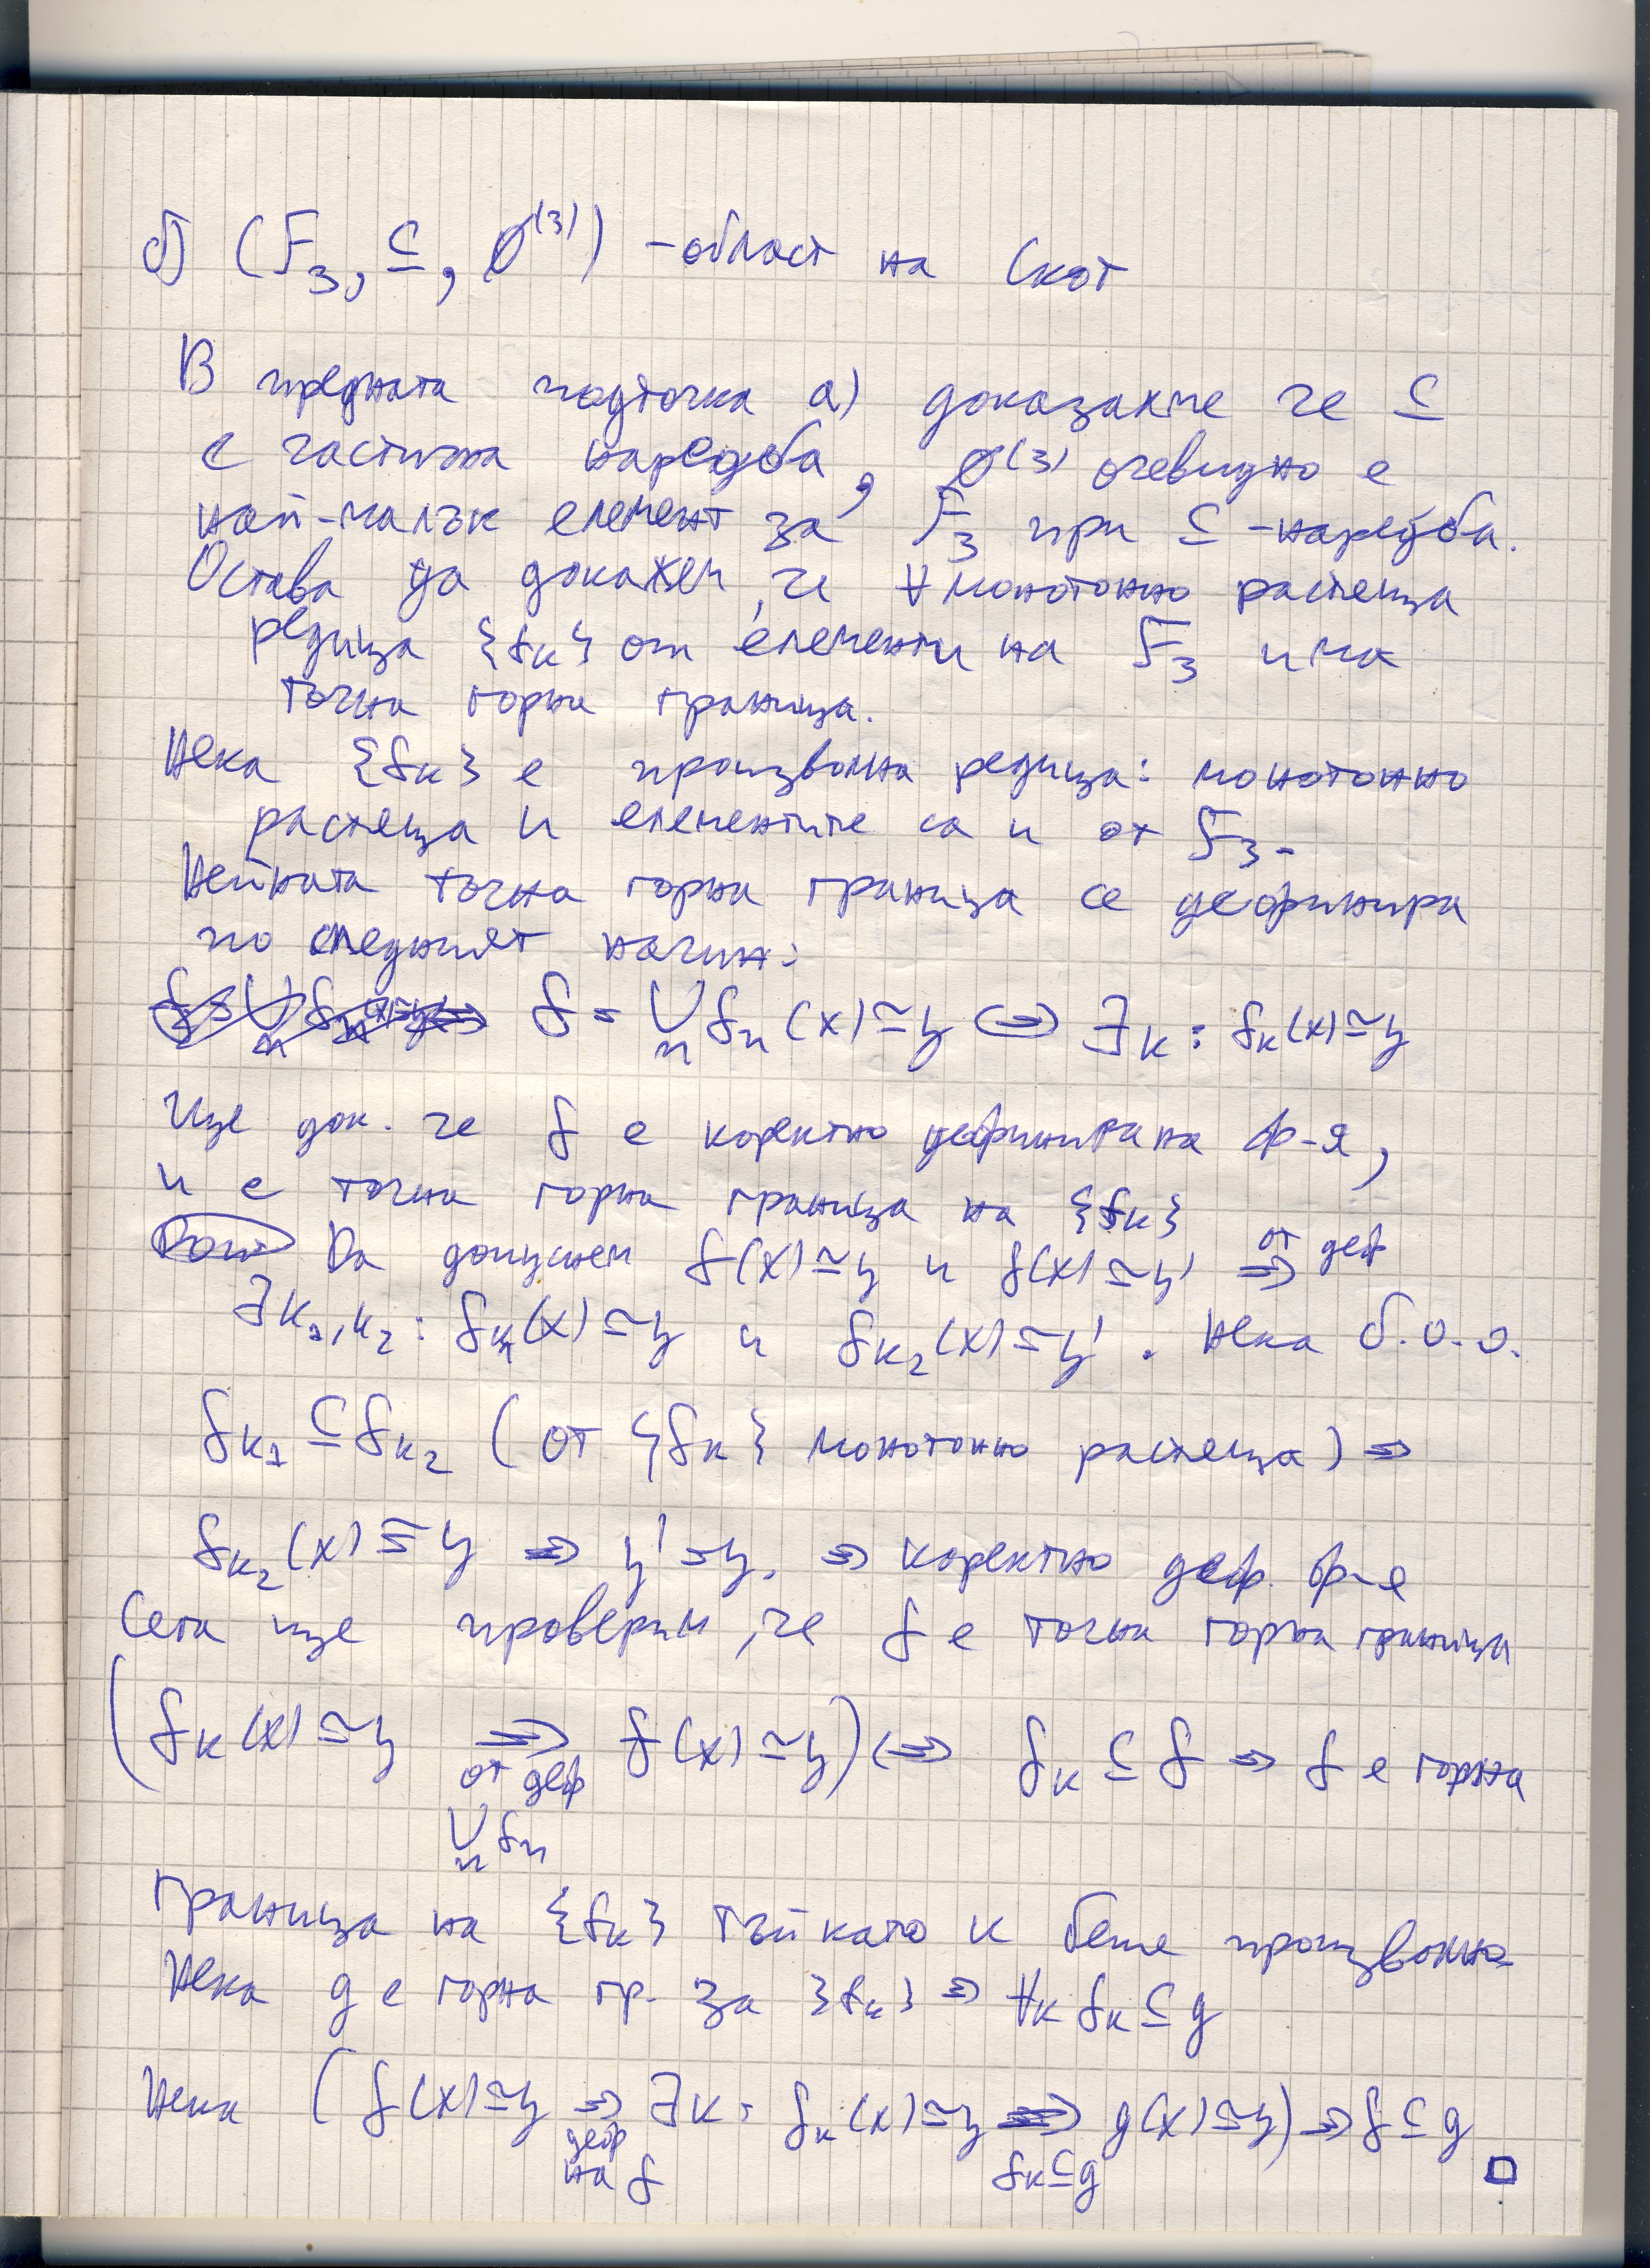 б) (F₃, ⊆, ∅⁽³⁾) - област на Скот
В предната подточка а) доказахме че ⊆
е частична наредба, ∅⁽³⁾ очевидно е
най-малък елемент за F₃ при ⊆ -наредба.
Остава да докажем, че ∀ монотонно растеща
редица {fₖ} от елементи на F₃ има
точна горна граница.
Нека {fₖ} е произволна редица: монотонно
растеща и елементите са и от F₃.
Нейната точна горна граница се дефинира
по следният начин:
f = ⋃ₙ fₙ(x) ≃ y ⇔ ∃k : fₖ(x) ≃ y
Ще док. че f е коректно дефинирана ф-я,
и е точна горна граница на {fₖ}
Да допуснем f(x) ≃ y и f(x) ≃ y' ⇒ от деф
∃k₁, k₂ : fₖ₁(x) ≃ y и fₖ₂(x) ≃ y'. Нека б.о.о.
fₖ₁ ⊆ fₖ₂ (от {fₖ} монотонно растеща) ⇒
fₖ₂(x) ≃ y ⇒ y' = y. ⇒ коректно деф. ф-я
Сега ще проверим, че f е точна горна граница
(fₖ(x) ≃ y ⇒ f(x) ≃ y) ⇔ fₖ ⊆ f ⇒ f е горна
от деф
⋃ₙ fₙ
граница на {fₖ} тъй като k беше произволно
Нека g е горна гр. за {fₖ} ⇒ ∀k fₖ ⊆ g
Нека (f(x) ≃ y ⇒ ∃k : fₖ(x) ≃ y ⇒ g(x) ≃ y) ⇒ f ⊆ g
деф на f fₖ ⊆ g □